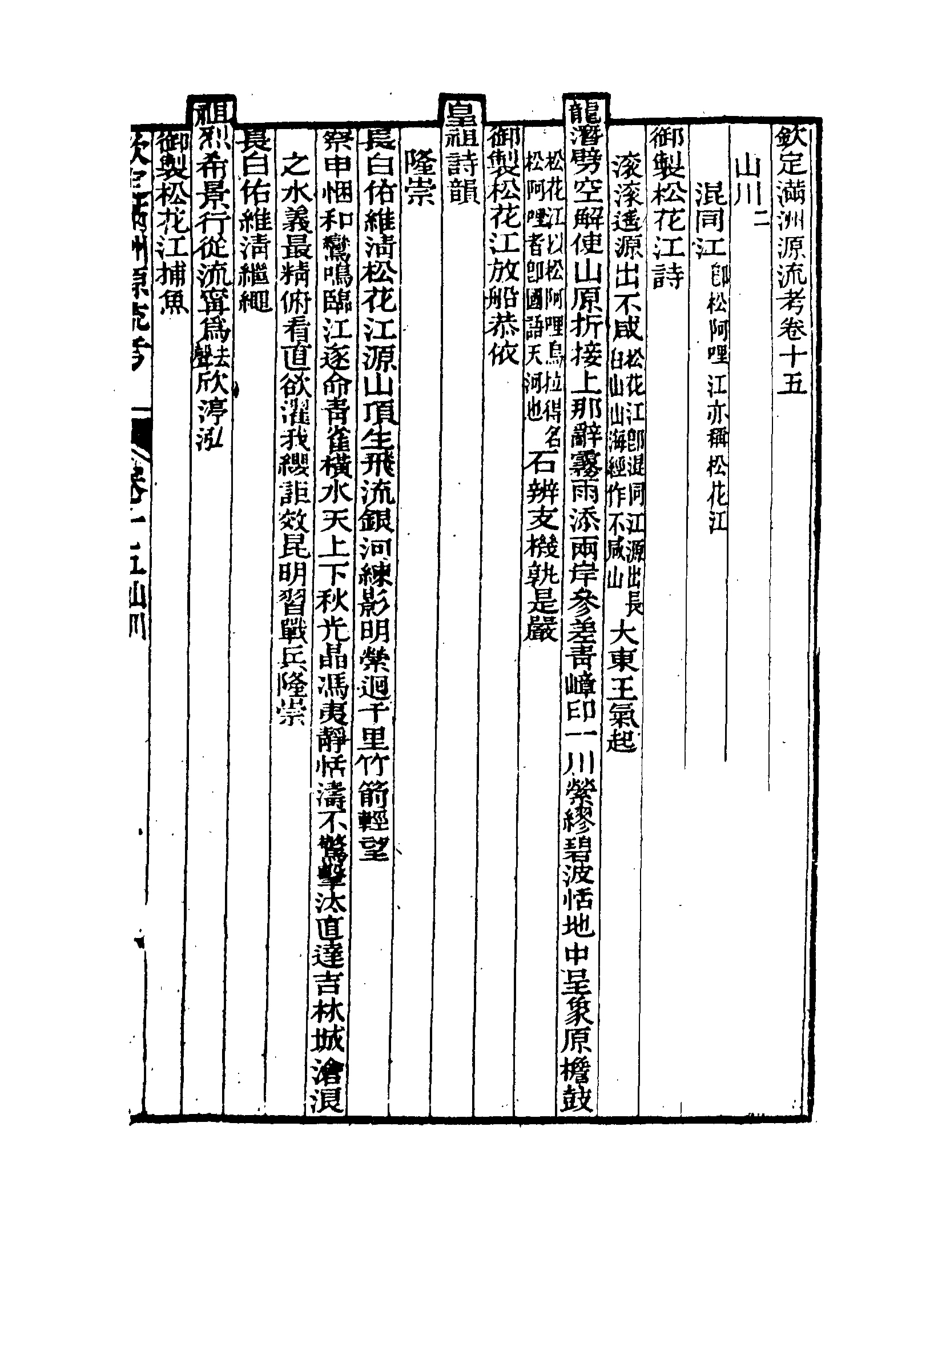 欽定滿洲源流考卷十五
山川二
混同江卽松阿哩江亦稱松花江
御製松花江詩
滾滾遙源出不咸松花江卽混同江源出長白山山海經作不咸山大東王氣起
龍潛劈空解使山原折接上那辭霧雨添兩岸參差靑嶂印一川縈繆碧波恬地中呈象原檐鼓
松花江以松阿哩烏拉得名松阿哩者卽國語天河也石辨支機孰是嚴
御製松花江放船恭依
皇祖詩韻
隆崇
長白佑維淸松花江源山頂生飛流銀河練影明縈迴千里竹箭輕望
祭申悃和鸞鳴臨江遂命靑雀橫水天上下秋光晶馮夷靜恬濤不驚擊汰直達吉林城滄浪
之水義最精俯看直欲濯我纓詎效昆明習戰兵隆崇
長白佑維淸繼繩
祖烈希景行從流寧爲去聲欣渟泓
御製松花江捕魚
欽定滿洲源流考 卷十五山川